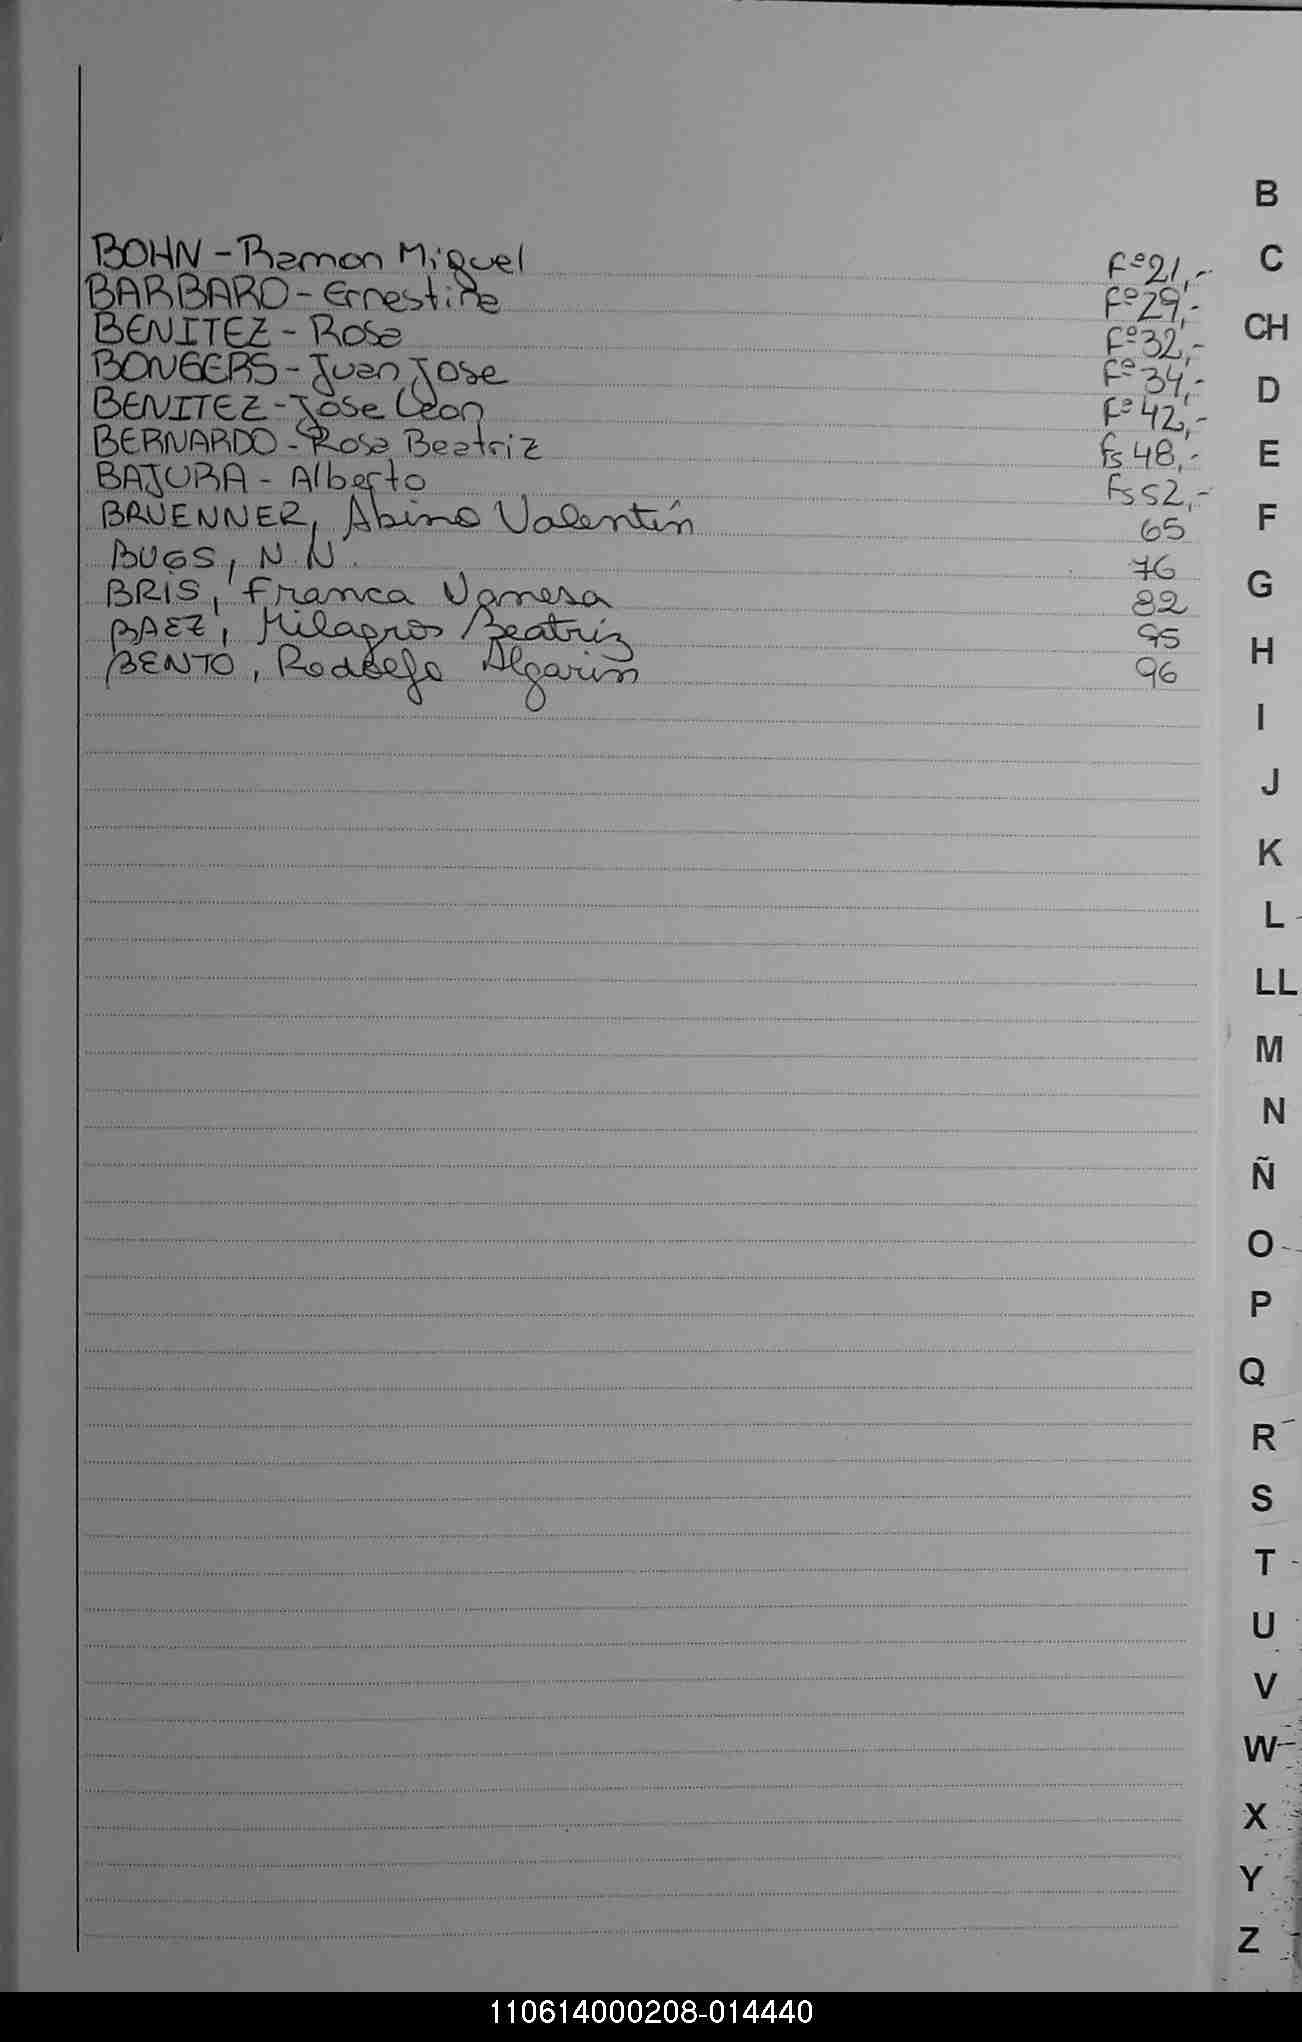 BOHN - Ramon Miguel Fº 21,-
BARBARO - Ernestina Fº 29,-
BENITEZ - Rosa Fº 32,-
BONGERS - Juan Jose Fº 34,-
BENITEZ - Jose Leon Fº 42,-
BERNARDO - Rosa Beatriz fs 48,-
BAJURA - Alberto Fs 52,-
BRUENNER, Abino Valentín 65
BUGS, N.N. 76
BRIS, Franca Vanesa 82
BAEZ, Milagros Beatriz 95
BENTO, Rodolfo Algarin 96
B
C
CH
D
E
F
G
H
I
J
K
L
LL
M
N
Ñ
O
P
Q
R
S
T
U
V
W
X
Y
Z
110614000208-014440